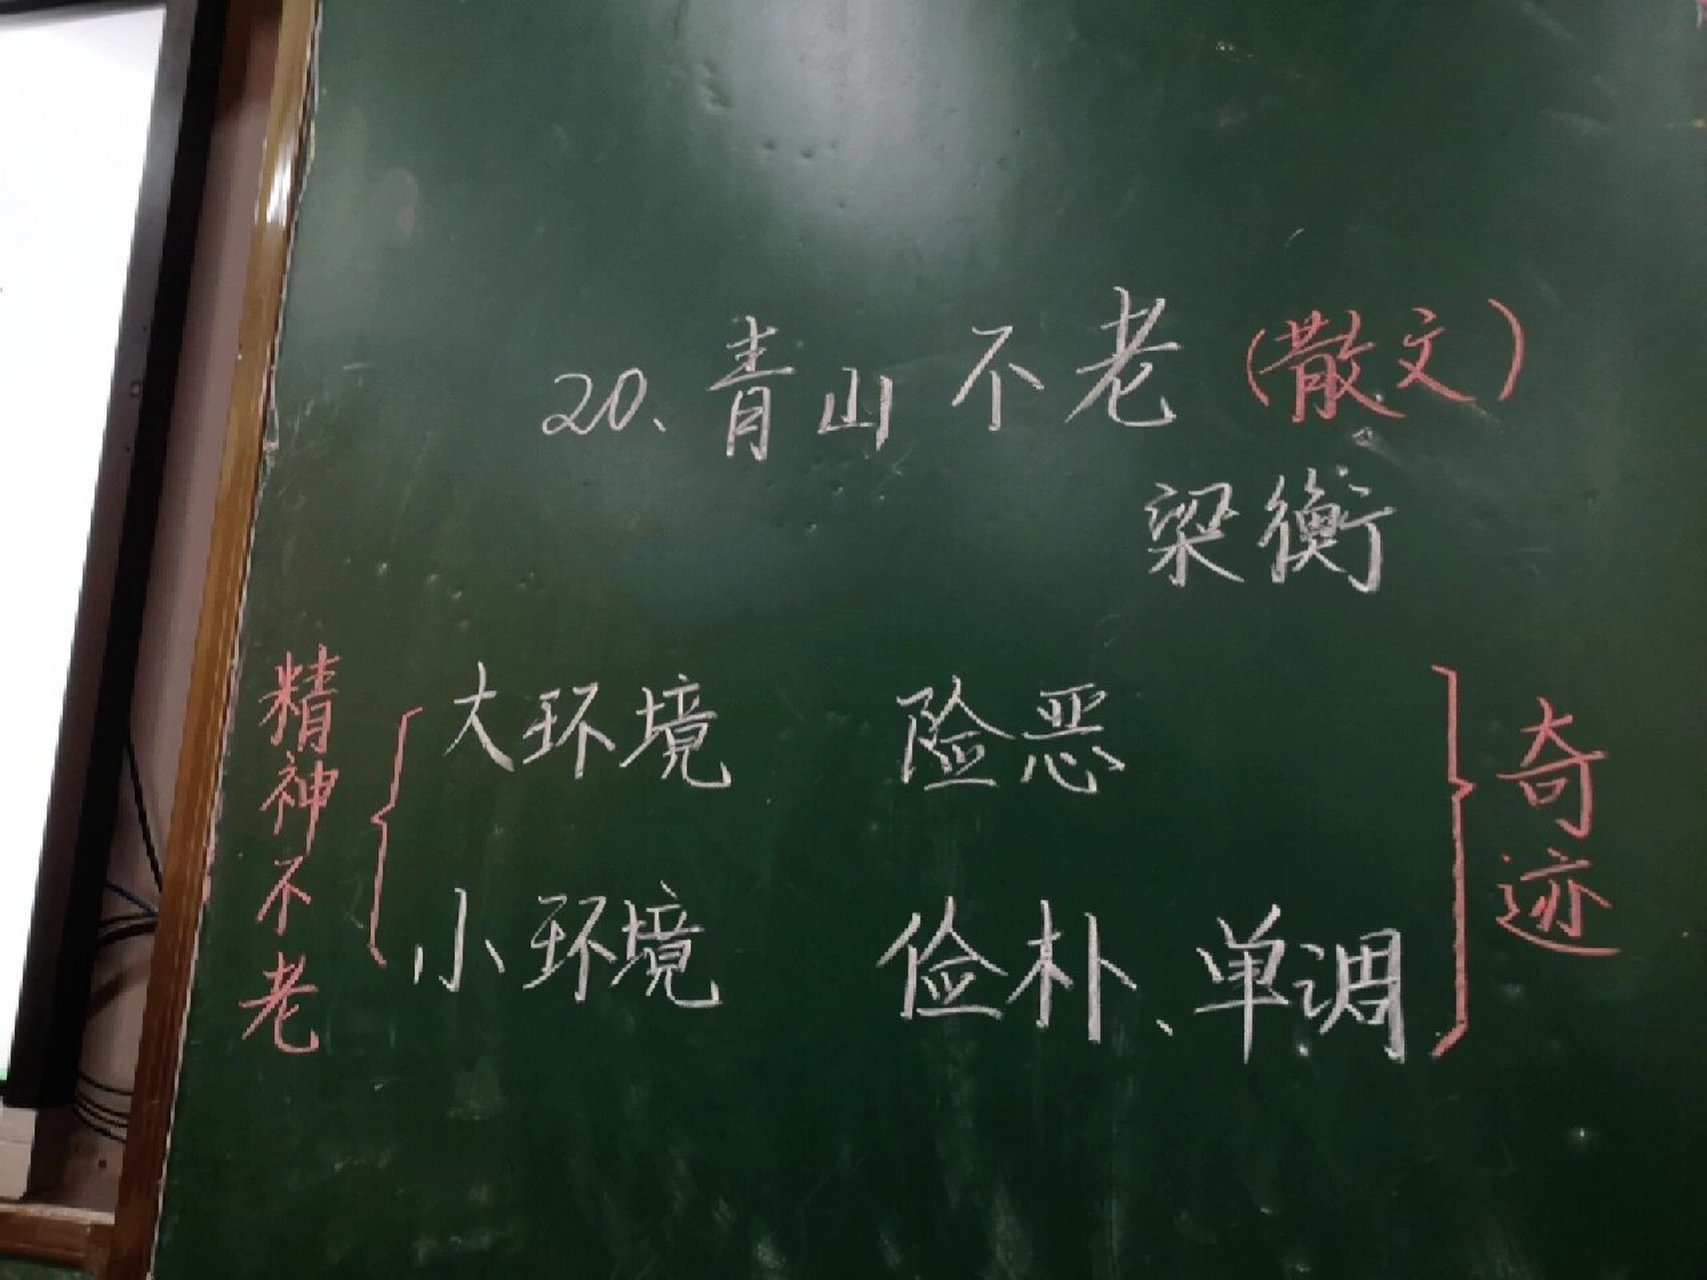 20、青山不老(散文)
梁衡
精神不老
大环境 险恶
小环境 俭朴、单调
奇迹